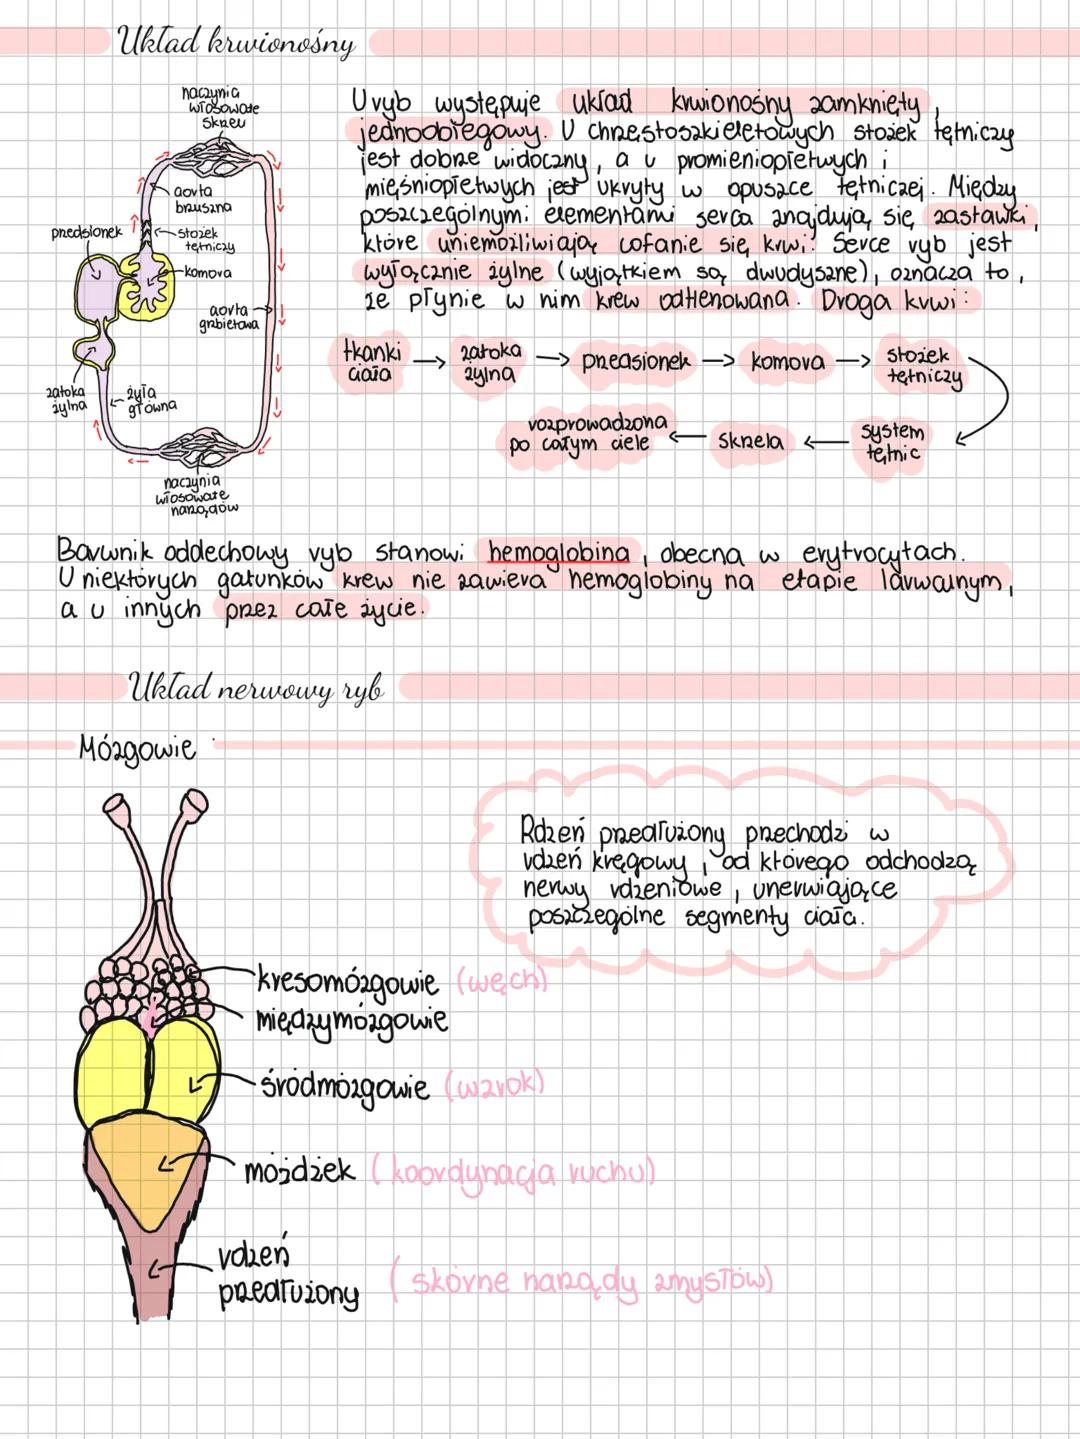 Układ krwionośny
naczynia
włosowate
skrzeli
aorta
brzuszna
przedsionek
stożek
tętniczy
komora
aorta
grzbietowa
zatoka
żylna
żyła
główna
naczynia
włosowate
narządów
U ryb występuje układ krwionośny zamknięty,
jednoobiegowy. U chrzęstoszkieletowych stożek tętniczy
jest dobrze widoczny, a u promieniopłetwych i
mięśniopłetwych jest ukryty w opuszce tętniczej. Między
poszczególnymi elementami serca znajdują się zastawki,
które uniemożliwiają cofanie się krwi! Serce ryb jest
wyłącznie żylne (wyjątkiem są dwudyszne), oznacza to,
że płynie w nim krew odtlenowana. Droga krwi:
tkanki ciała → zatoka żylna → przedsionek → komora → stożek tętniczy
rozprowadzona po całym ciele ← skrzela ← system tętnic
Barwnik oddechowy ryb stanowi hemoglobina, obecna w erytrocytach.
U niektórych gatunków krew nie zawiera hemoglobiny na etapie larwalnym,
a u innych przez całe życie.
Układ nerwowy ryb
Mózgowie
Rdzeń przedłużony przechodzi w
rdzeń kręgowy, od którego odchodzą
nerwy rdzeniowe, unerwiające
poszczególne segmenty ciała.
kresomózgowie (węch)
międzymózgowie
śródmózgowie (wzrok)
móżdżek (koordynacja ruchu)
rdzeń
przedłużony (skórne narządy zmysłów)